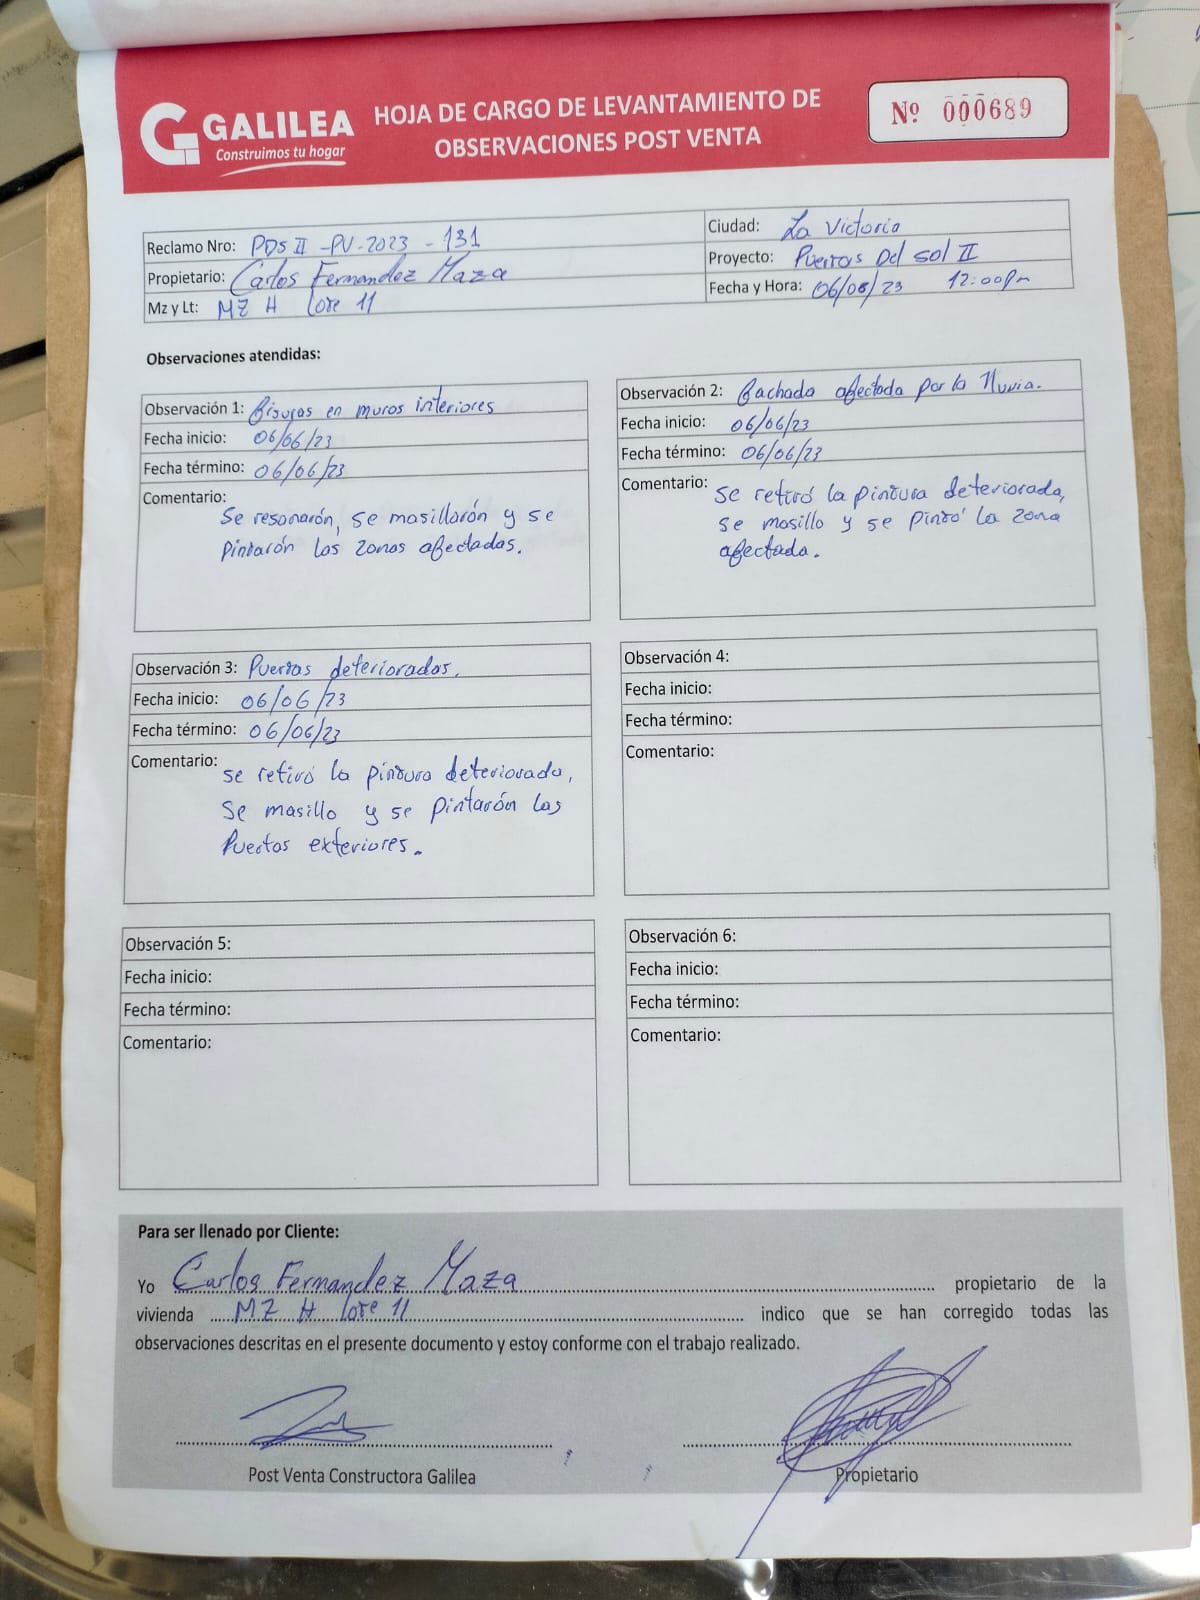 GALILEA
Construimos tu hogar
HOJA DE CARGO DE LEVANTAMIENTO DE
OBSERVACIONES POST VENTA
Nº 000689
Reclamo Nro: PDS II -PV-2023 - 131
Propietario: Carlos Fernandez Maza
Mz y Lt: MZ H Lote 11
Ciudad: La Victoria
Proyecto: Puertas Del Sol II
Fecha y Hora: 06/06/23 12:00pm
Observaciones atendidas:
Observación 1: Fisuras en muros interiores
Fecha inicio: 06/06/23
Fecha término: 06/06/23
Comentario:
Se resanarón, se masillarón y se
Pintarón las zonas afectadas.
Observación 2: Fachada afectada por la lluvia.
Fecha inicio: 06/06/23
Fecha término: 06/06/23
Comentario: Se retiró la pintura deteriorada,
se masillo y se pintó la zona
afectada.
Observación 3: Puertas deterioradas.
Fecha inicio: 06/06/23
Fecha término: 06/06/23
Comentario: Se retiró la pintura deteriorada,
Se masillo y se Pintarón las
Puertas exteriores.
Observación 4:
Fecha inicio:
Fecha término:
Comentario:
Observación 5:
Fecha inicio:
Fecha término:
Comentario:
Observación 6:
Fecha inicio:
Fecha término:
Comentario:
Para ser llenado por Cliente:
Yo Carlos Fernandez Maza propietario de la
vivienda MZ H Lote 11 indico que se han corregido todas las
observaciones descritas en el presente documento y estoy conforme con el trabajo realizado.
Post Venta Constructora Galilea
Propietario